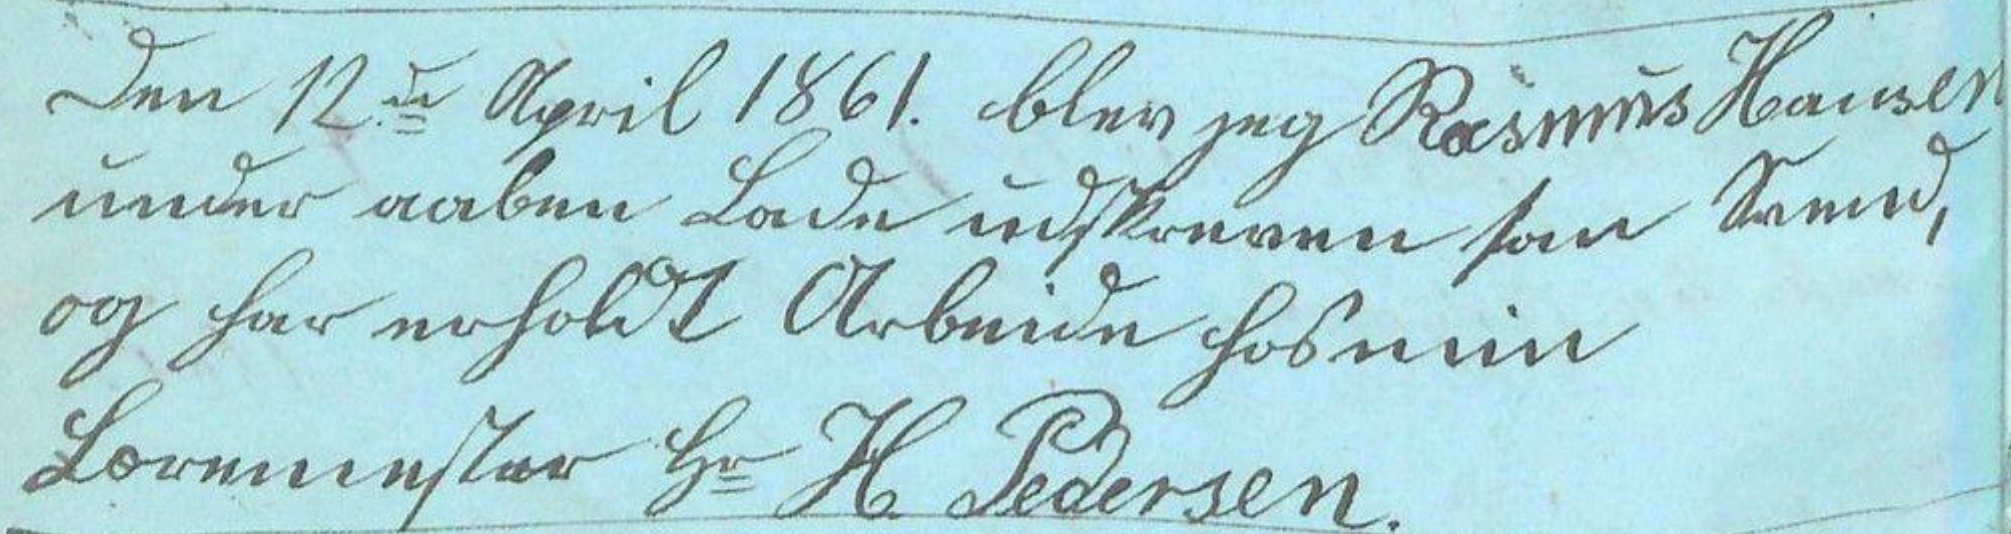 Den 12te April 1861. blev jeg Rasmus Hansen
under aaben Lade udskreven som Svend,
og har erholdt Arbeide hos min
Læremester Hr H Pedersen.